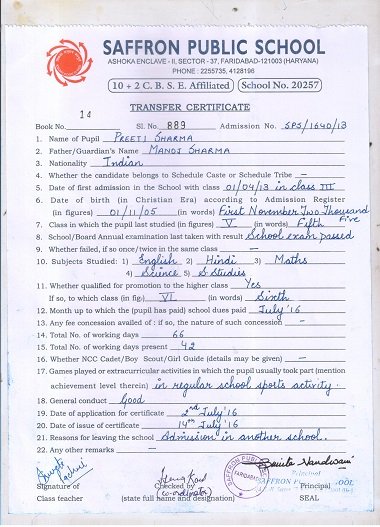 SAFFRON PUBLIC SCHOOL
ASHOKA ENCLAVE - II, SECTOR - 37, FARIDABAD-121003 (HARYANA)
PHONE : 2255735, 4128196
10 + 2 C. B. S. E. Affiliated School No. 20257
TRANSFER CERTIFICATE
Book No. 14 Sl. No. 889 Admission No. SPS/1640/13
1. Name of Pupil PREETI SHARMA
2. Father/Guardian's Name MANOJ SHARMA
3. Nationality Indian
4. Whether the candidate belongs to Schedule Caste or Schedule Tribe –
5. Date of first admission in the School with class 01/04/13 in class III
6. Date of birth (in Christian Era) according to Admission Register
(in figures) 01/11/05 (in words) First November Two Thousand Five
7. Class in which the pupil last studied (in figures) V (in words) Fifth
8. School/Board Annual examination last taken with result School exam passed
9. Whether failed, if so once/twice in the same class –
10. Subjects Studied: 1) English 2) Hindi 3) Maths
4) Science 5) S Studies
11. Whether qualified for promotion to the higher class Yes
If so, to which class (in fig:) VI (in words) Sixth
12. Month up to which the (pupil has paid) school dues paid July '16
13. Any fee concession availed of : if so, the nature of such concession –
14. Total No. of working days 66
15. Total No. of working days present 42
16. Whether NCC Cadet/Boy Scout/Girl Guide (details may be given) –
17. Games played or extracurricular activities in which the pupil usually took part (mention
achievement level therein) in regular school sports activity.
18. General conduct Good
19. Date of application for certificate 2nd July '16
20. Date of issue of certificate 14th July '16
21. Reasons for leaving the school Admission in another school.
22. Any other remarks –
Signature of Checked by Principal
Class teacher (state full name and designation) SEAL
(co-ordinator)
SAFFRON PUBLIC
FARIDABAD
Principal